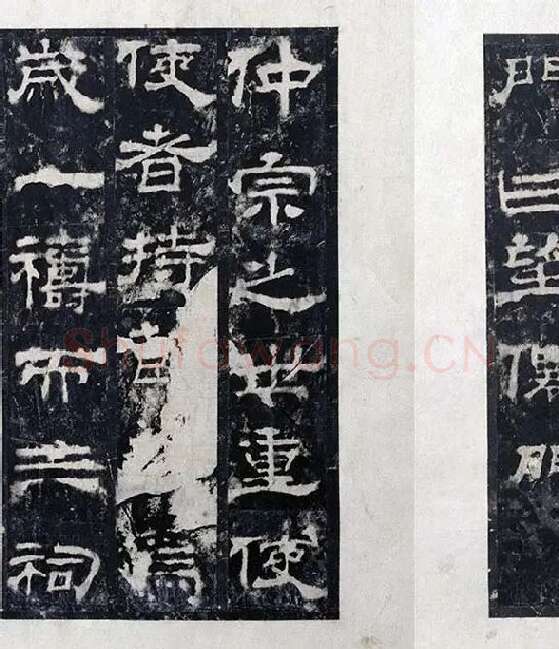 門曰望僊門
仲宗之世重使
使者持節焉
歲一禱而三祠
Shufawang.CN